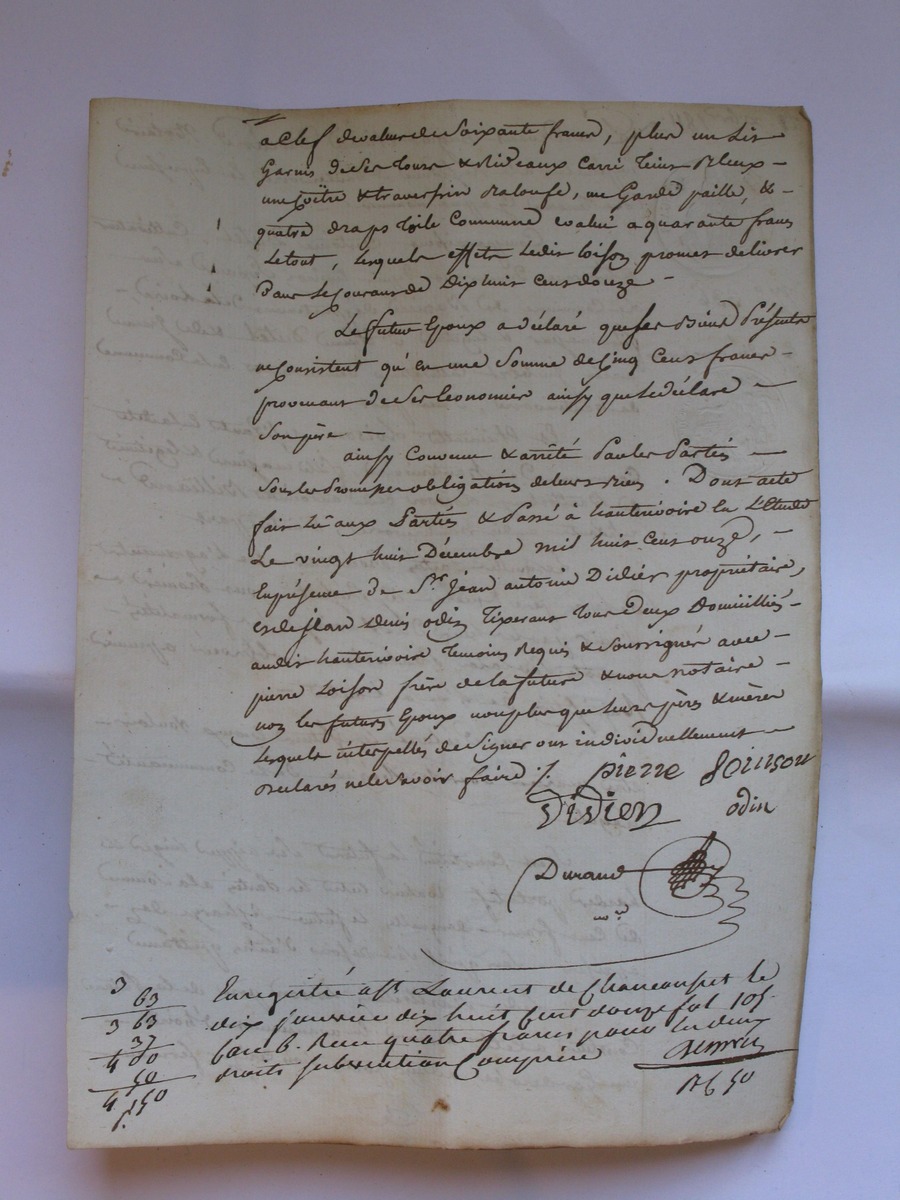 a Clef de valeur de Soixante francs, plus un Lit
Garni de Ses tours & Rideaux Carré teint Bleux
une Coitre & traversin Baloufe, une Garde paille, &
quatre draps toile Commune evalué a quarante francs
Le tout, Lesquels effets Ledit Loison promet delivrer
Dans Le Courant de Dix huit Cent douze
Le futur Epoux a déclaré que ses Biens Présents
ne Consistent qu'en une Somme de Cinq Cent francs
provenant de Ses Economies ainsy que Le déclare
Son père
ainsy Convenu & arrêté Par les Parties
Sous les obligations de leurs Biens. Dont acte
fait Lû aux Parties & Passé à hauterivoire En L'Etude
Le vingt huit Décembre mil huit Cent onze,
En présence de Sr. Jéan antoine Didier propriétaire,
et de Jean Denis odin Tixerant tous Deux Domiciliés
audit hauterivoire temoins Requis & Soussignés avec
pierre Loison frère de la future & nous notaire
non les futurs Epoux non plus que leurs pères & mères
Lesquels interpellés de Signer ont individuellement
Declarés ne le Savoir faire ./. pierre Loinson
Didier odin
Durand
nore
3 63 Enregistré a St. Laurent de Chamousset le
3 63 dix janvier dix huit cent douze fol 105
37 case 6. Reçu quatre francs pour les deux
4 00 droits subvention Comprise
40
4 40